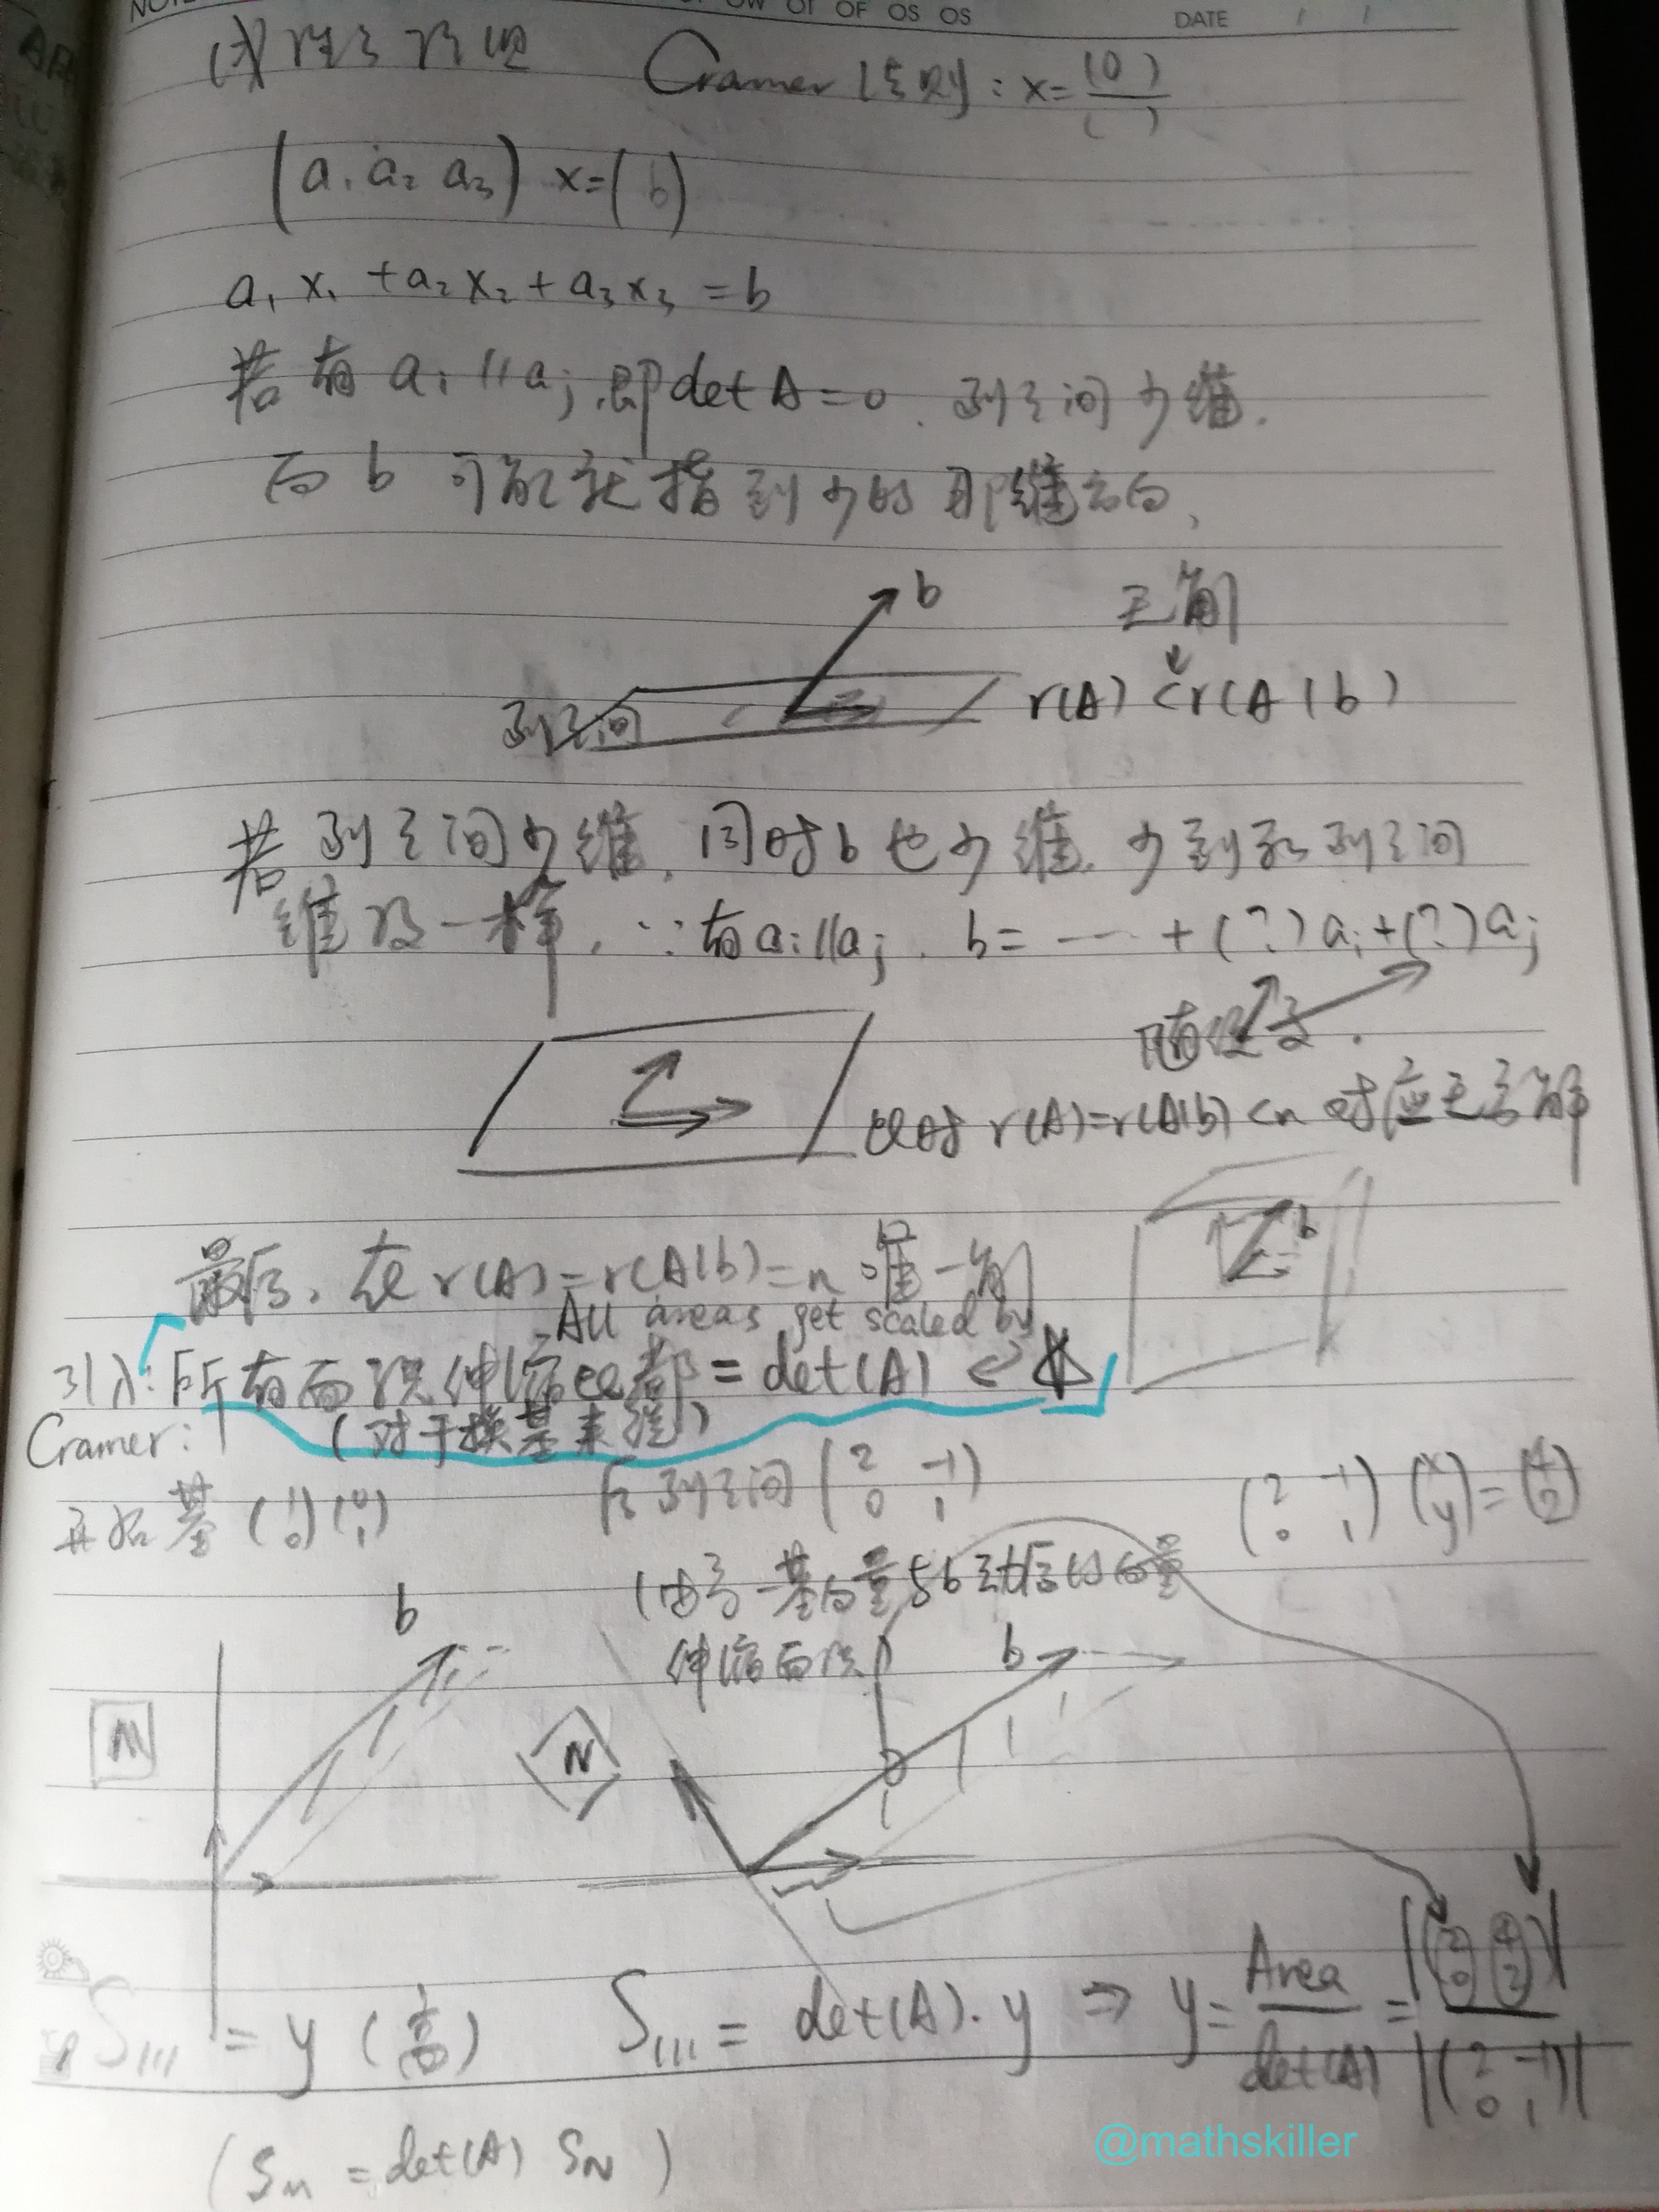 OF OS OS DATE
Cramer 法则: x=
(a₁ a₂ a₃) x=(b)
a₁x₁+a₂x₂+a₃x₃=b
若有 aᵢ∥aⱼ, 即 det A=0. 列空间少维.
而 b 可能就指到少的那维方向,
b
无解
列空间 r(A)<r(A|b)
若列空间少维, 同时b也少维, 少到和列空间
维度一样, ∵有aᵢ∥aⱼ. b= … +(?)aᵢ+(?)aⱼ
随便变.
此时 r(A)=r(A|b)<n 对应无穷解
b
最后, 在 r(A)=r(A|b)=n 唯一解
All areas get scaled by
引入: 所有面积伸缩比都=det(A)
Cramer: (对于换基来说)
开始基 (1 0)(0 1)
后列空间 (2 -1 0 1)
(2 -1 0 1)(x y)=(4 2)
(由另一基向量与b变换后的向量
伸缩面积)
b
b
M
N
S = y (高)
S = det(A)·y ⇒ y= Area/det(A) = |(2 0)(4 2)|/|(2 -1 0 1)|
(Sₘ = det(A) S_N)
@mathskiller